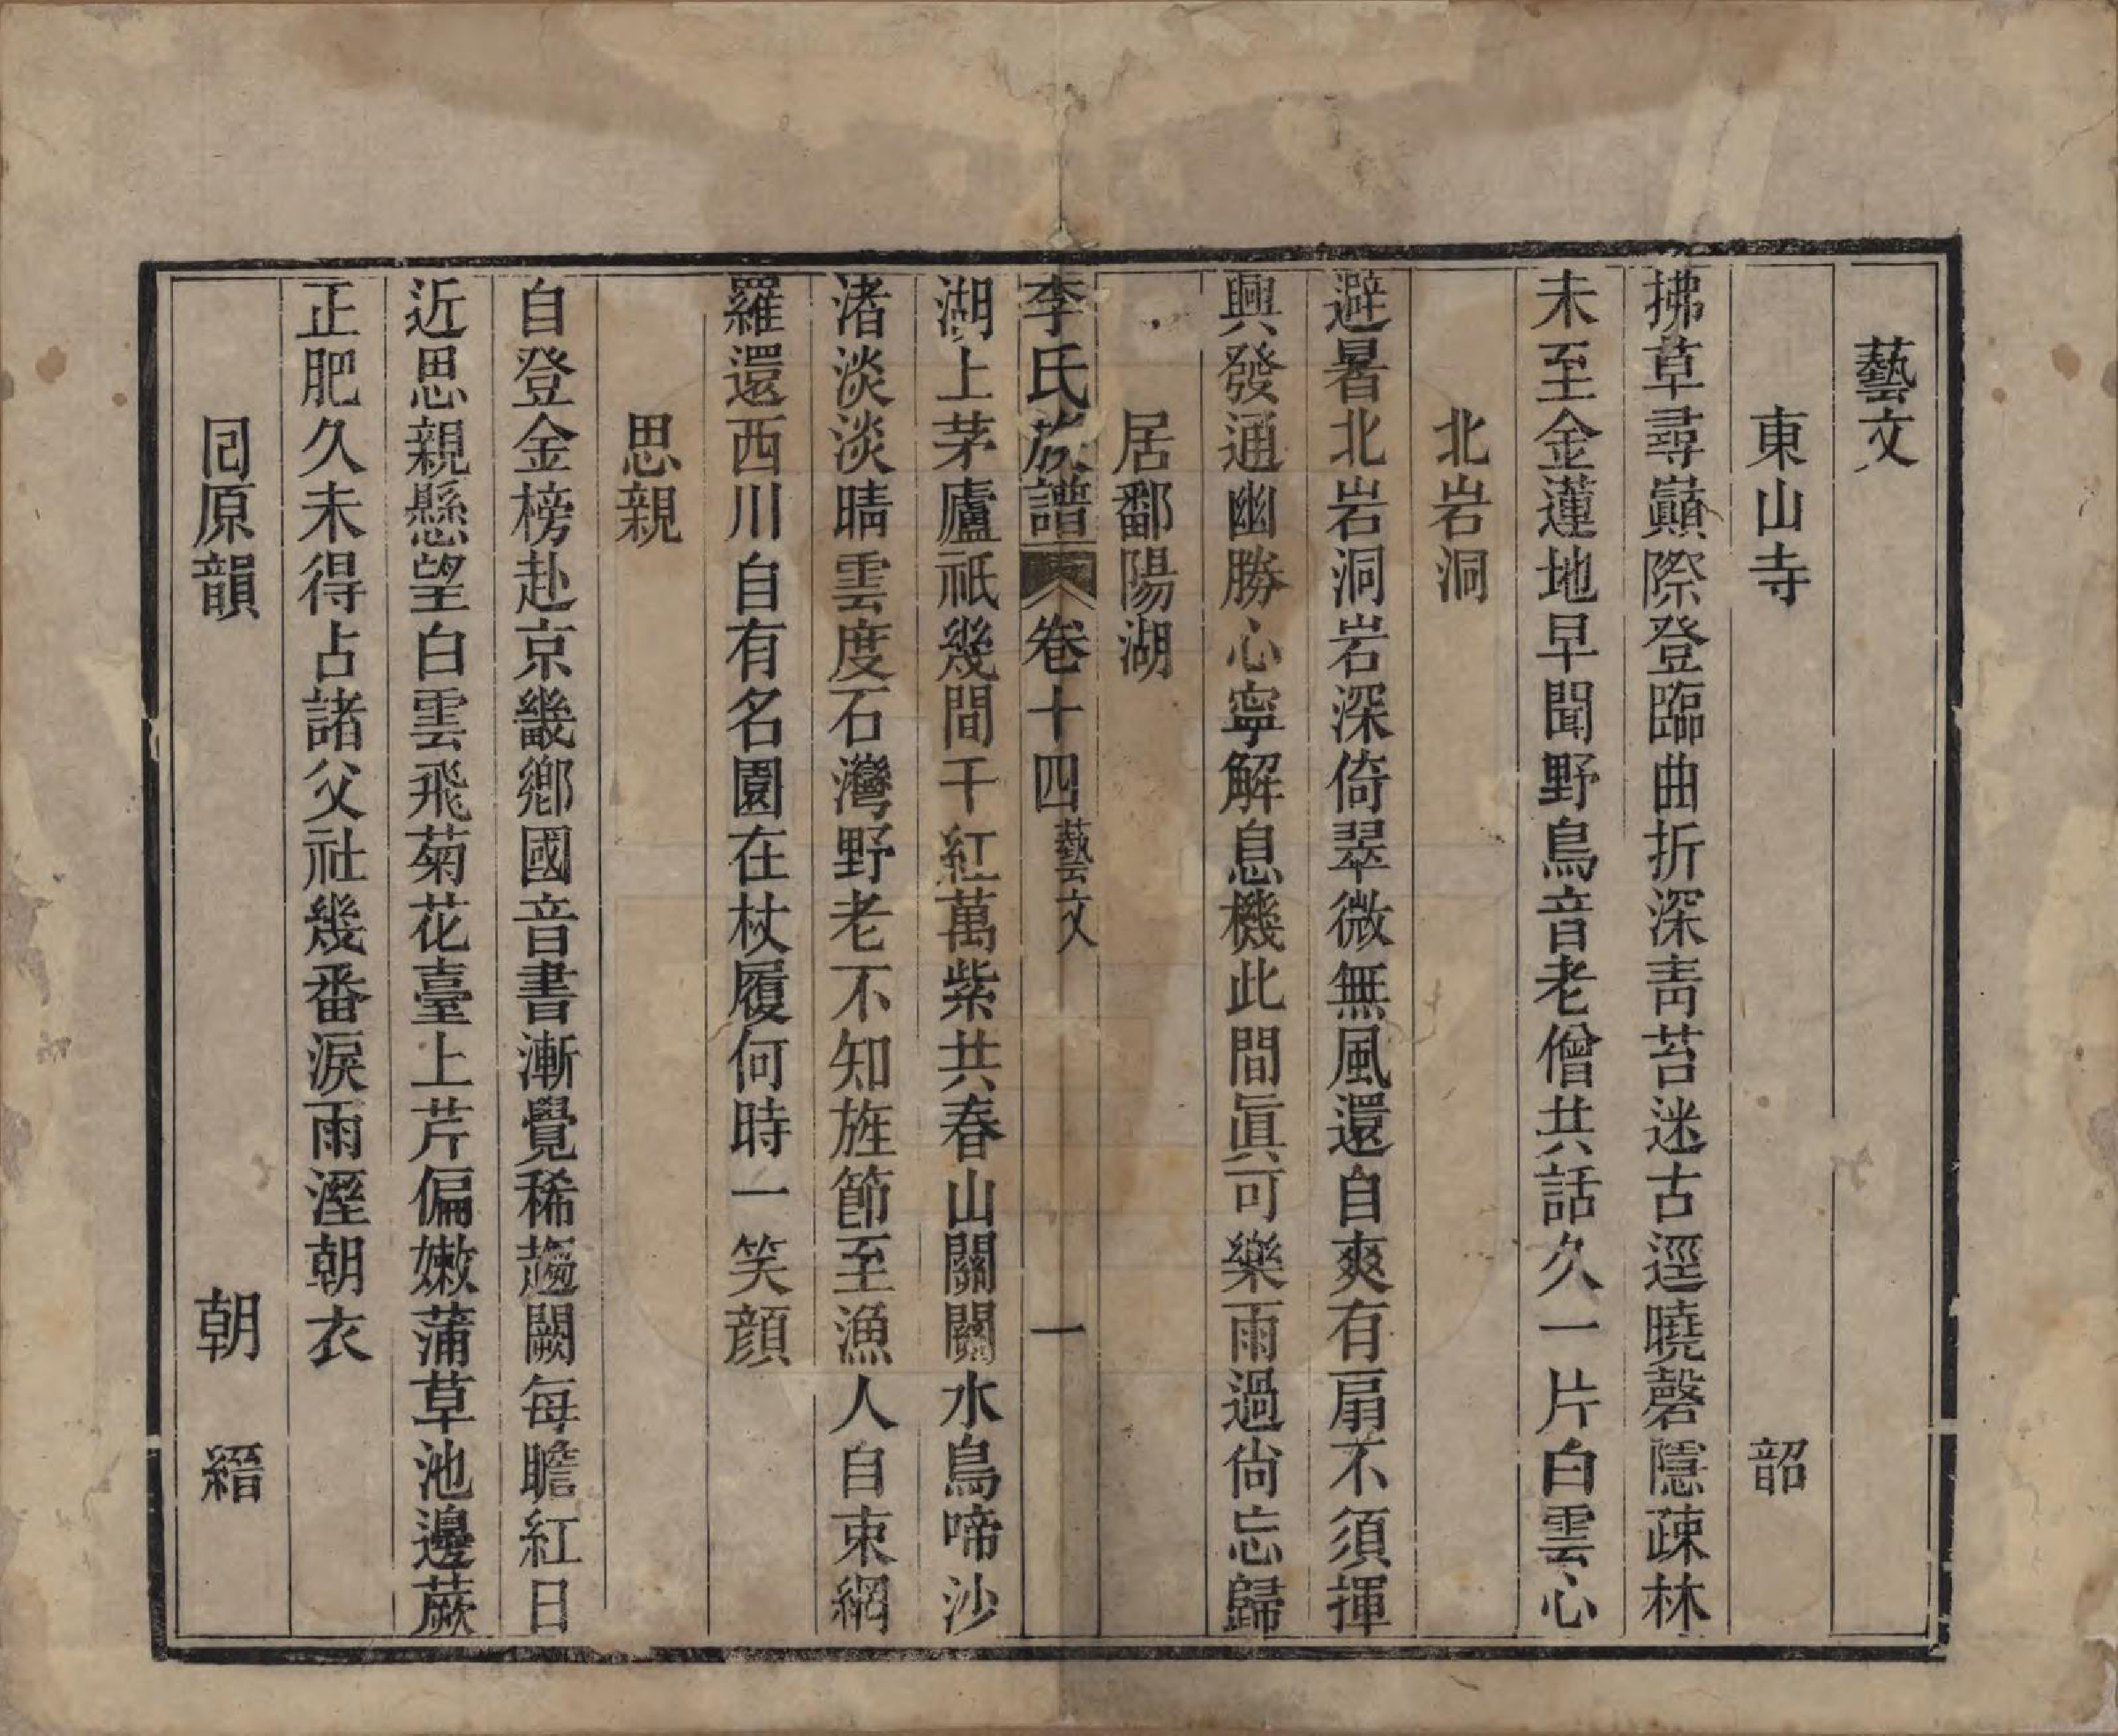 藝文
東山寺 韶
拂草尋巔際登臨曲折深靑苔迷古逕曉磬隱疎林
未至金蓮地早聞野鳥音老僧共話久一片白雲心
北岩洞
避暑北岩洞岩深倚翠微無風還自爽有扇不須揮
興發通幽勝心寧解息機此間眞可樂雨過尙忘歸
居鄱陽湖
李氏族譜 卷十四 藝文 一
湖上茅廬祇幾間千紅萬紫共春山關關水鳥啼沙
渚淡淡晴雲度石灣野老不知旌節至漁人自束網
羅還西川自有名園在杖履何時一笑顔
思親
自登金榜赴京畿鄉國音書漸覺稀趨闕每瞻紅日
近思親懸望白雲飛菊花臺上芹偏嫩蒲草池邊蕨
正肥久未得占諸父社幾番淚雨溼朝衣
同原韻 朝 縉